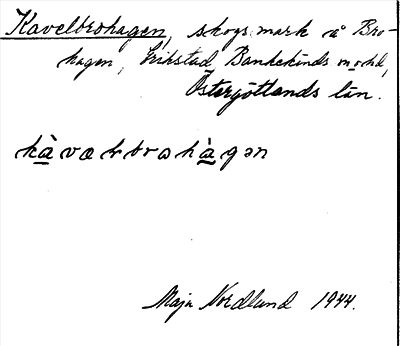 Kavelbrohagen, skogsmark å Bro-
hagen, Grikstad, Bankekinds md,
Östergötlands län.
kàvælbrohàgən
Maja Nordlund 1944.